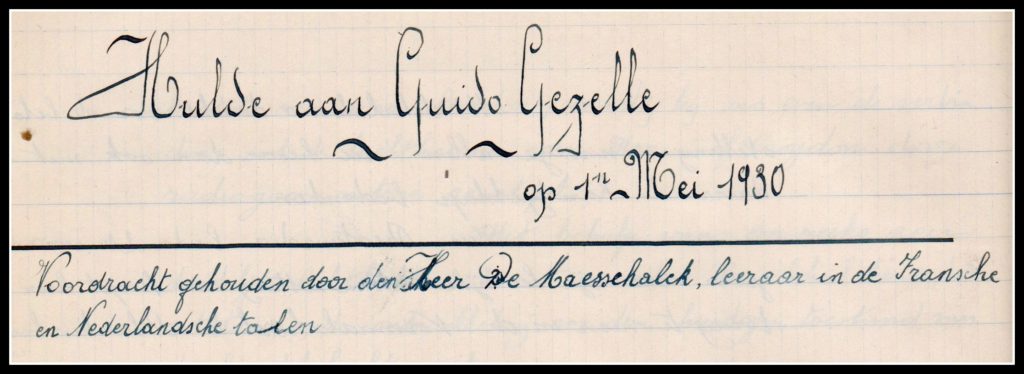 Hulde aan Guido Gezelle
op 1en Mei 1930
Voordracht gehouden door den Heer De Maesschalck, leeraar in de Fransche
en Nederlandsche talen